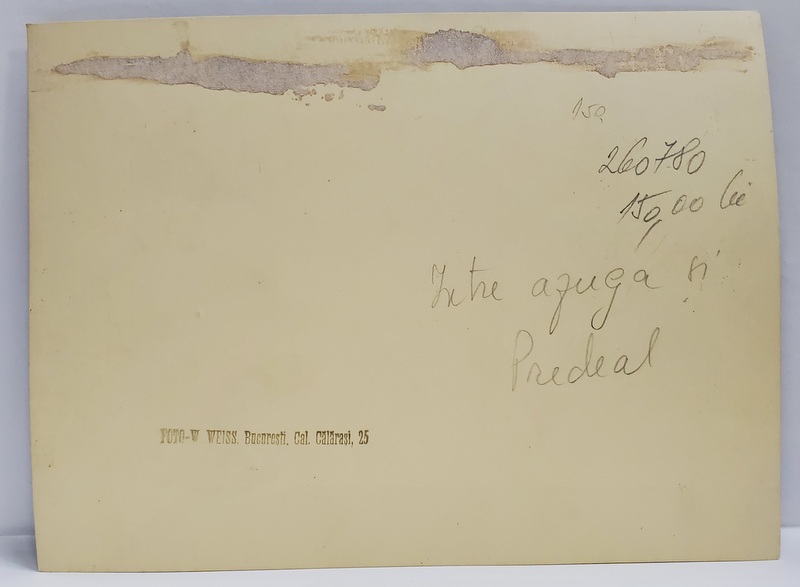 150
260780
150,00 lei
Intre azuga și
Predeal
FOTO-W WEISS. Bucuresti. Cal. Călărași, 25